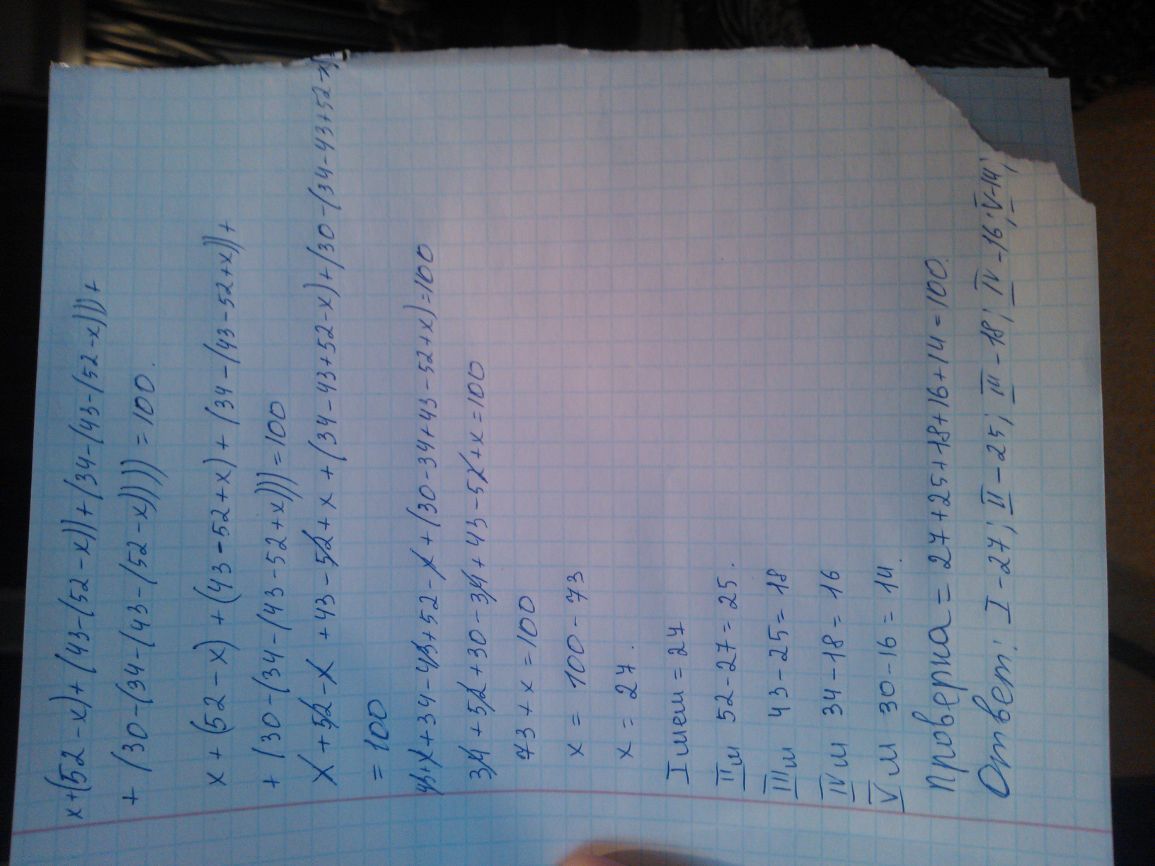 x+(52-x)+(43-(52-x))+(34-(43-(52-x)))+
+(30-(34-(43-(52-x))))=100.
x+(52-x)+(43-52+x)+(34-(43-52+x))+
+(30-(34-(43-52+x)))=100
x+52-x+43-52+x+(34-43+52-x)+(30-(34-43+52-x)
=100
43+x+34-43+52-x+(30-34+43-52+x)=100
34+52+30-34+43-52+x=100
73+x=100
x=100-73
x=27.
I мет=27
II м 52-27=25.
III м 43-25=18
IV м 34-18=16
V м 30-16=14.
Проверка=27+25+18+16+14=100.
Ответ: I-27; II-25; III-18; IV-16; V-14;